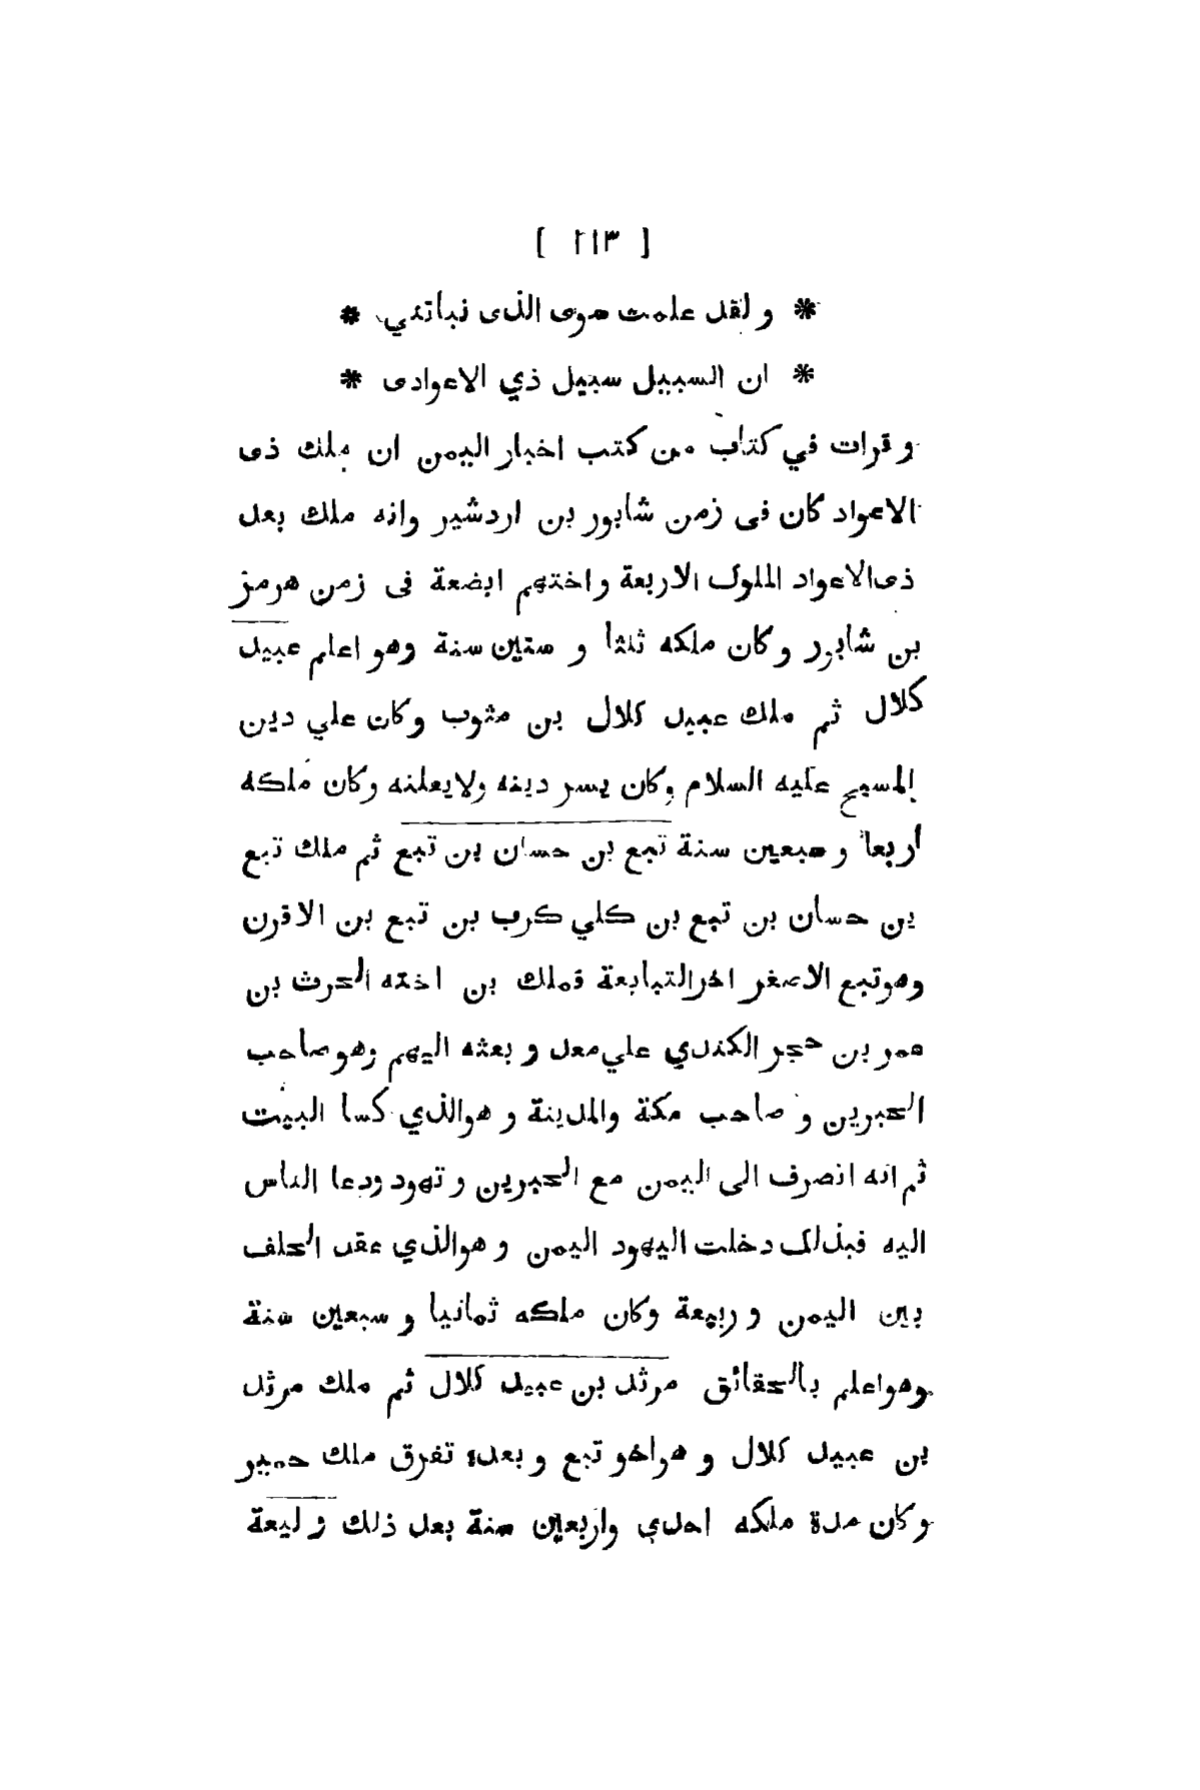 [ ٢١٣ ]
* و لقد علمت سوى الذى نباتني *
* ان السبيل سبيل ذي الاعوادى *
و قرات في كتاب من كتب اخبار اليمن ان ملك ذى
الاعواد كان فى زمن شابور بن اردشير وانه ملك بعد
ذى الاعواد الملوك الاربعة واختهم ابضعة فى زمن هرمز
بن شابور وكان ملكه ثلثا و ستين سنة وهو اعلم عبيد
كلال ثم ملك عبيد كلال بن مثوب وكان علي دين
المسيح عليه السلام وكان يسر دينه ولا يعلنه وكان ملكه
اربعا و سبعين سنة تبع بن حسان بن تبع ثم ملك تبع
بن حسان بن تبع بن كلي كرب بن تبع بن الاقرن
وهو تبع الاصغر اخر التبابعة فملك بن اخته الحرث بن
عمر بن حجر الكندي علي معد و بعثه اليهم وهو صاحب
الحبرين و صاحب مكة والمدينة و هو الذي كسا البيت
ثم انه انصرف الى اليمن مع الحبرين و تهود ودعا الناس
اليه فبذلك دخلت اليهود اليمن و هو الذي عقد الحلف
بين اليمن و ربيعة وكان ملكه ثمانيا و سبعين سنة
وهو اعلم بالحقائق مرثد بن عبيد كلال ثم ملك مرثد
بن عبيد كلال و هو اخو تبع و بعده تفرق ملك حمير
وكان مدة ملكه احدي واربعين سنة بعد ذلك و ليعة